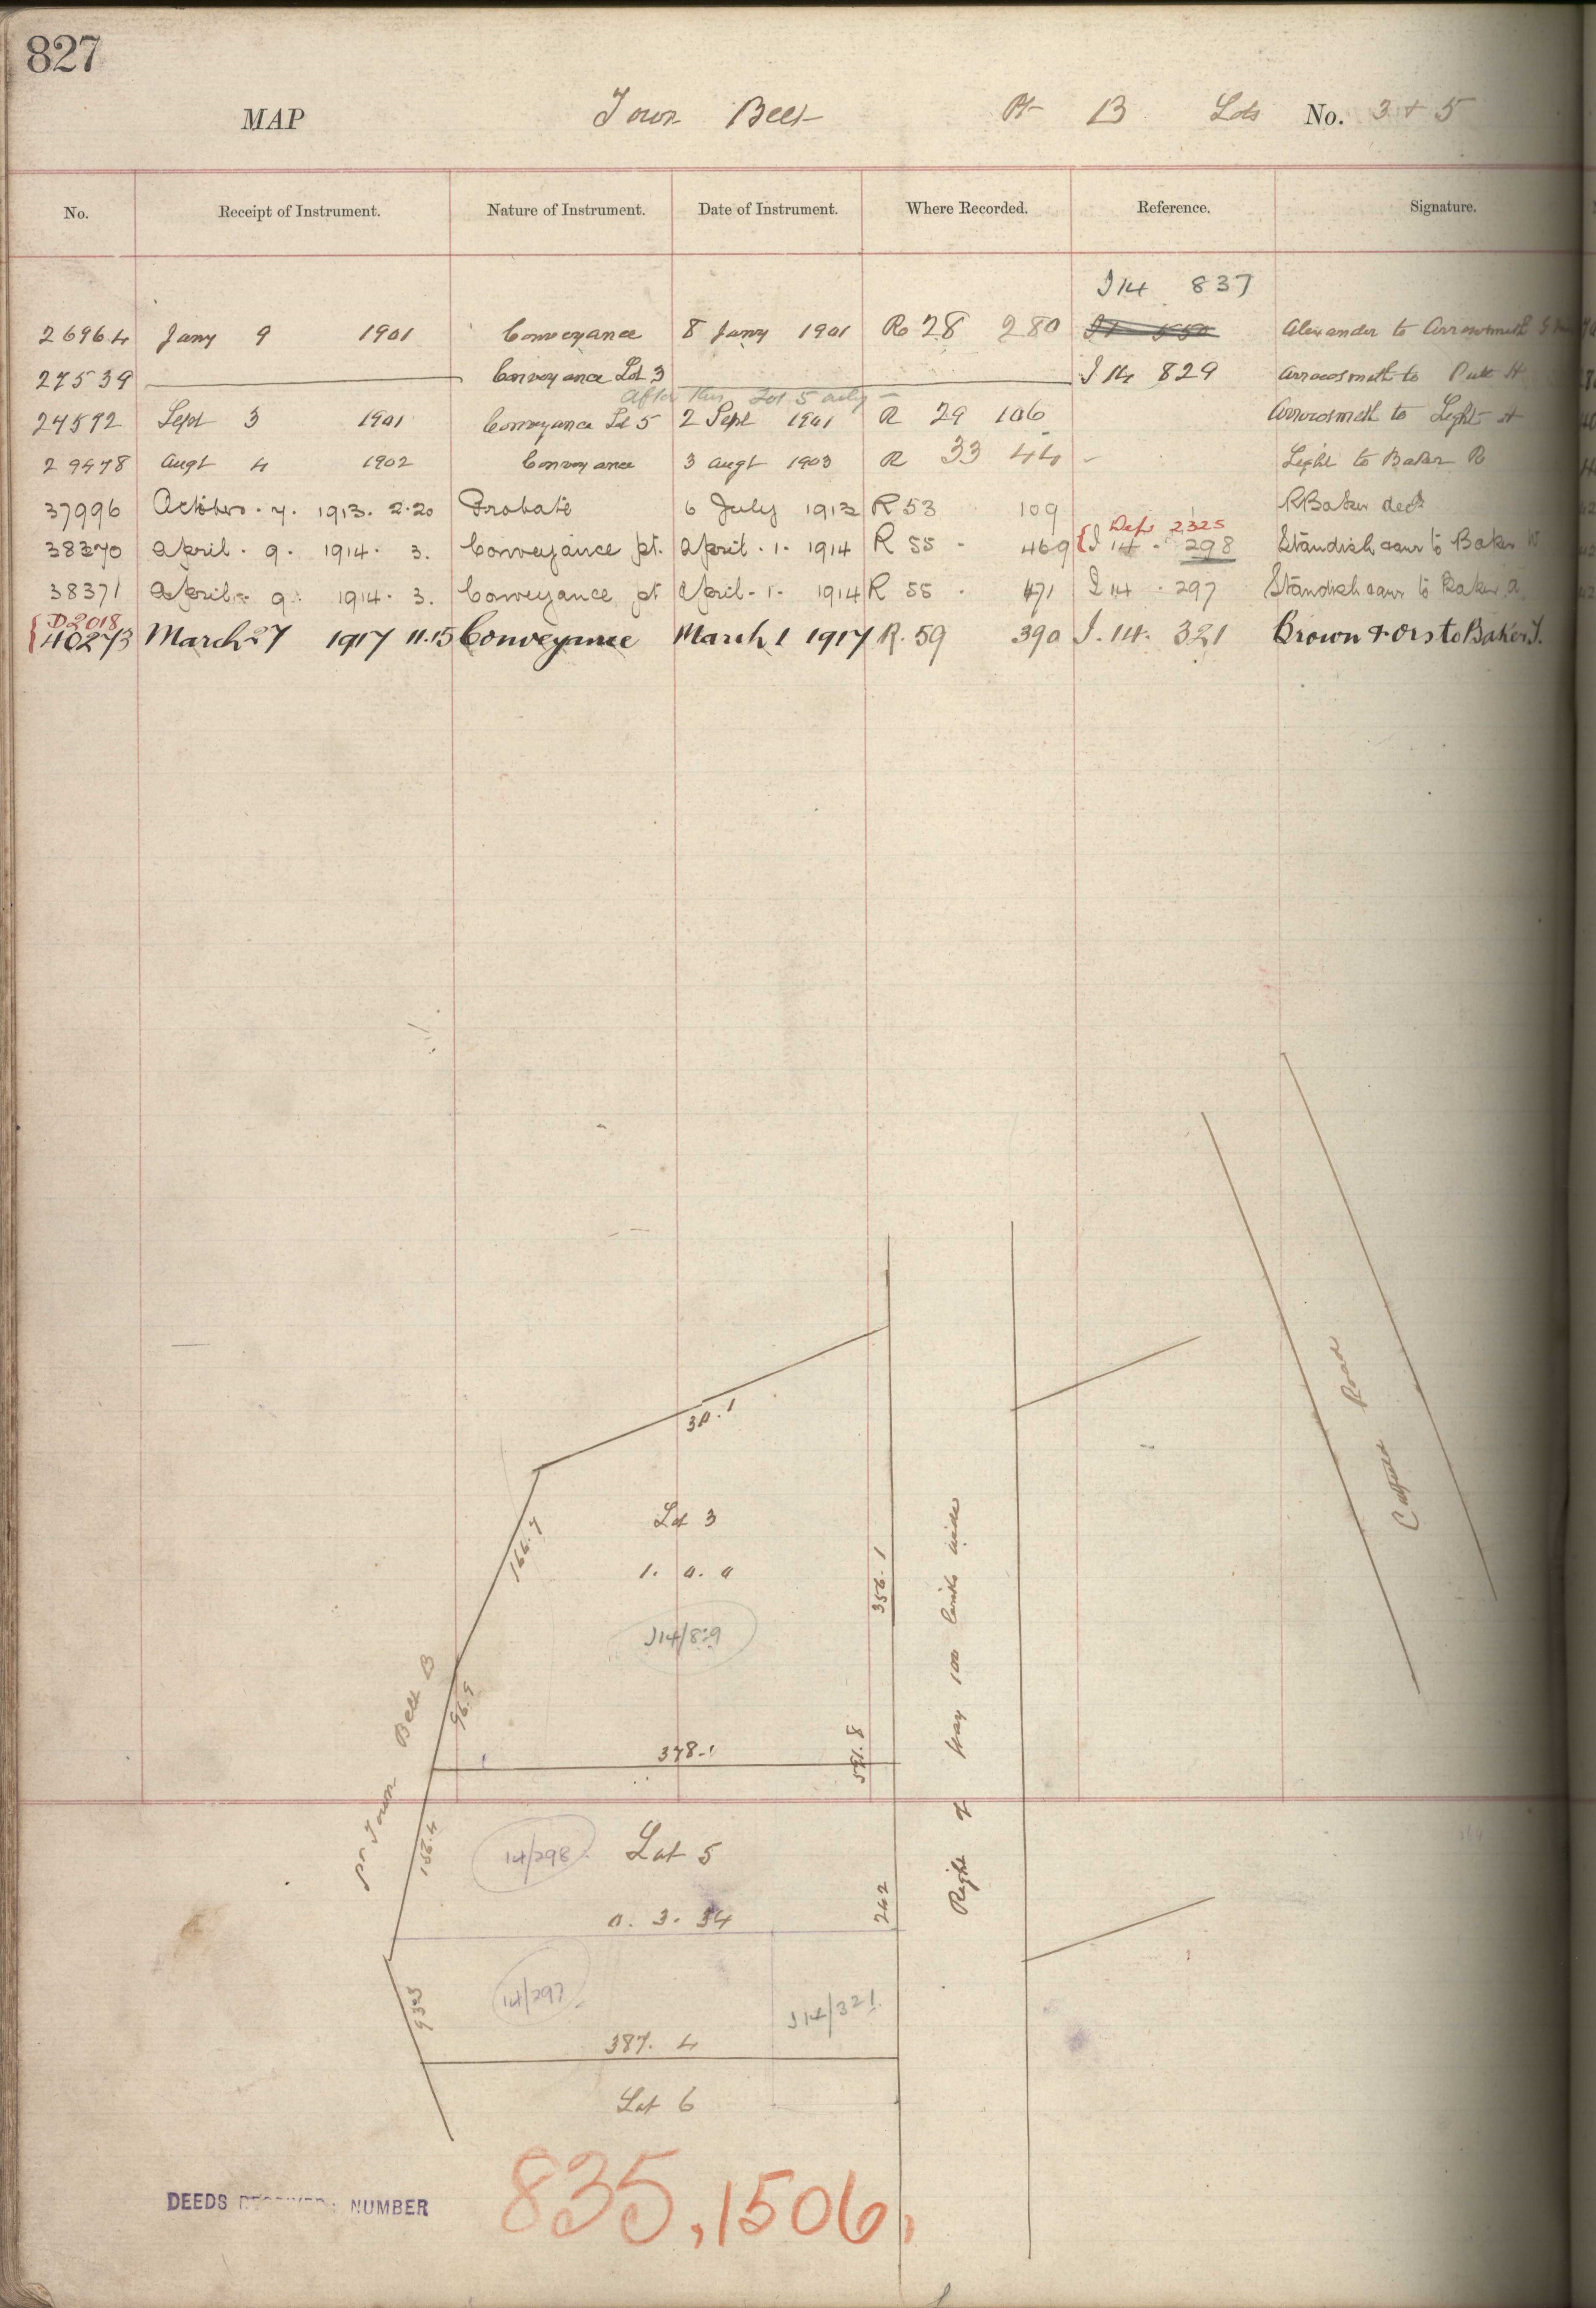 827
MAP Town Belt Pt B Lots No. 3 + 5
No. Receipt of Instrument. Nature of Instrument. Date of Instrument. Where Recorded. Reference. Signature.
I 14 837
26964 Jany 9 1901 Conveyance 8 Jany 1901 R 28 280 Alexander to Arrowsmith
27539 Conveyance Lot 3 I 14 829 Arrowsmith to
After this Lot 5 only
27572 Sept 3 1901 Conveyance Lot 5 2 Sept 1901 R 29 106 Arrowsmith to Light A
29478 Augt 4 1902 Conveyance 3 Augt 1903 R 33 44 - Light to Baker R
37996 October . 7. 1913. 2.20 Probate 6 July 1913 R 53 109 R Baker decd
Defs 2325
38370 April . 9 . 1914 . 3. Conveyance pt. April . 1 . 1914 R 55 - 469 I 14 . 298 Standish & anr to Baker W
38371 April . 9. 1914 . 3. Conveyance pt April . 1 . 1914 R 55 . 471 I 14 . 297 Standish & anr to Baker A
D2018
40273 March 27 1917 11.15 Conveyance March 1 1917 R. 59 390 I. 14. 321 Brown & ors to Baker J.
Road
Lot 3
166.7
356.1
1. 0. 0
Right of Way 100 links wide
J14/829
pt Town Belt B
96.9
378.1
591.8
14/298
Lot 5
156.4
242
0. 3. 34
14/297
J14/321
387. 4
Lot 6
835, 1506,
DEEDS NUMBER